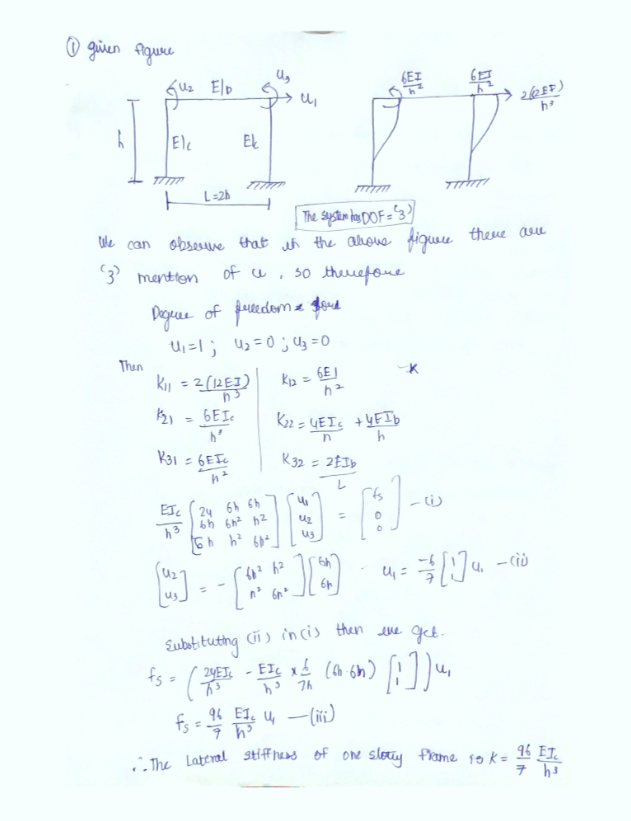 ① given figure
u2 EIb u3 u1
h EIc EIc
L=2h
6EI/h² 6EI/h² 2(12EI)/h³
The system has DOF = '3'
We can observe that in the above figure there are
'3' mention of u, so therefore
Degree of freedom
u1=1 ; u2=0 ; u3=0
Then
K11 = 2(12EI)/h³ K12 = 6EI/h²
K21 = 6EIc/h² K22 = 4EIc/h + 4EIb/h
K31 = 6EIc/h² K32 = 2EIb/L
EIc/h³ [24 6h 6h; 6h 6h² h²; 6h h² 6h²] [u1; u2; u3] = [fs; 0; 0] - (i)
[u2; u3] = - [6h² h²; h² 6h²] [6h; 6h] u1 = -6/7 [1; 1] u1 - (ii)
Substituting (ii) in (i) then we get.
fs = (24EIc/h³ - EIc/h³ × 6/7h (6h 6h) [1; 1]) u1
fs = 96/7 EIc/h³ u1 - (iii)
∴ The Lateral stiffness of one storey frame is K = 96/7 EIc/h³